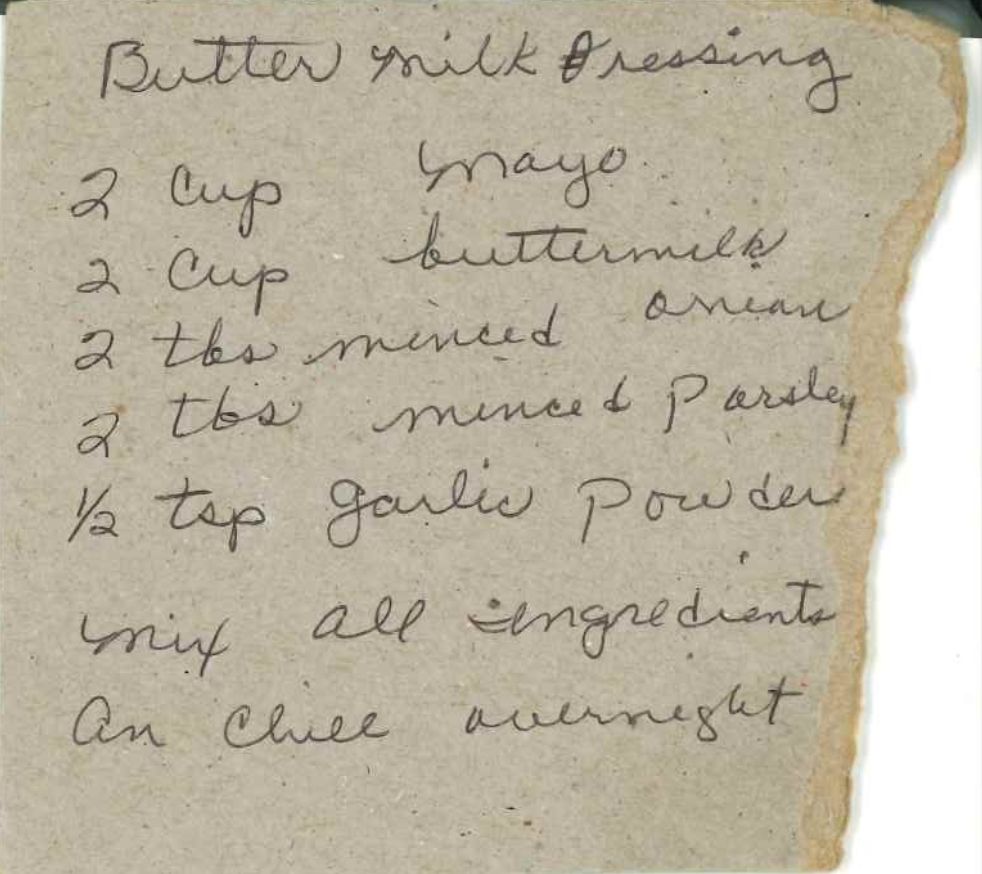 Butter milk Dressing
2 Cup mayo
2 Cup buttermilk
2 tbs minced onion
2 tbs minced Parsley
1/2 tsp garlic Powder
mix all ingredients
An Chill overnight